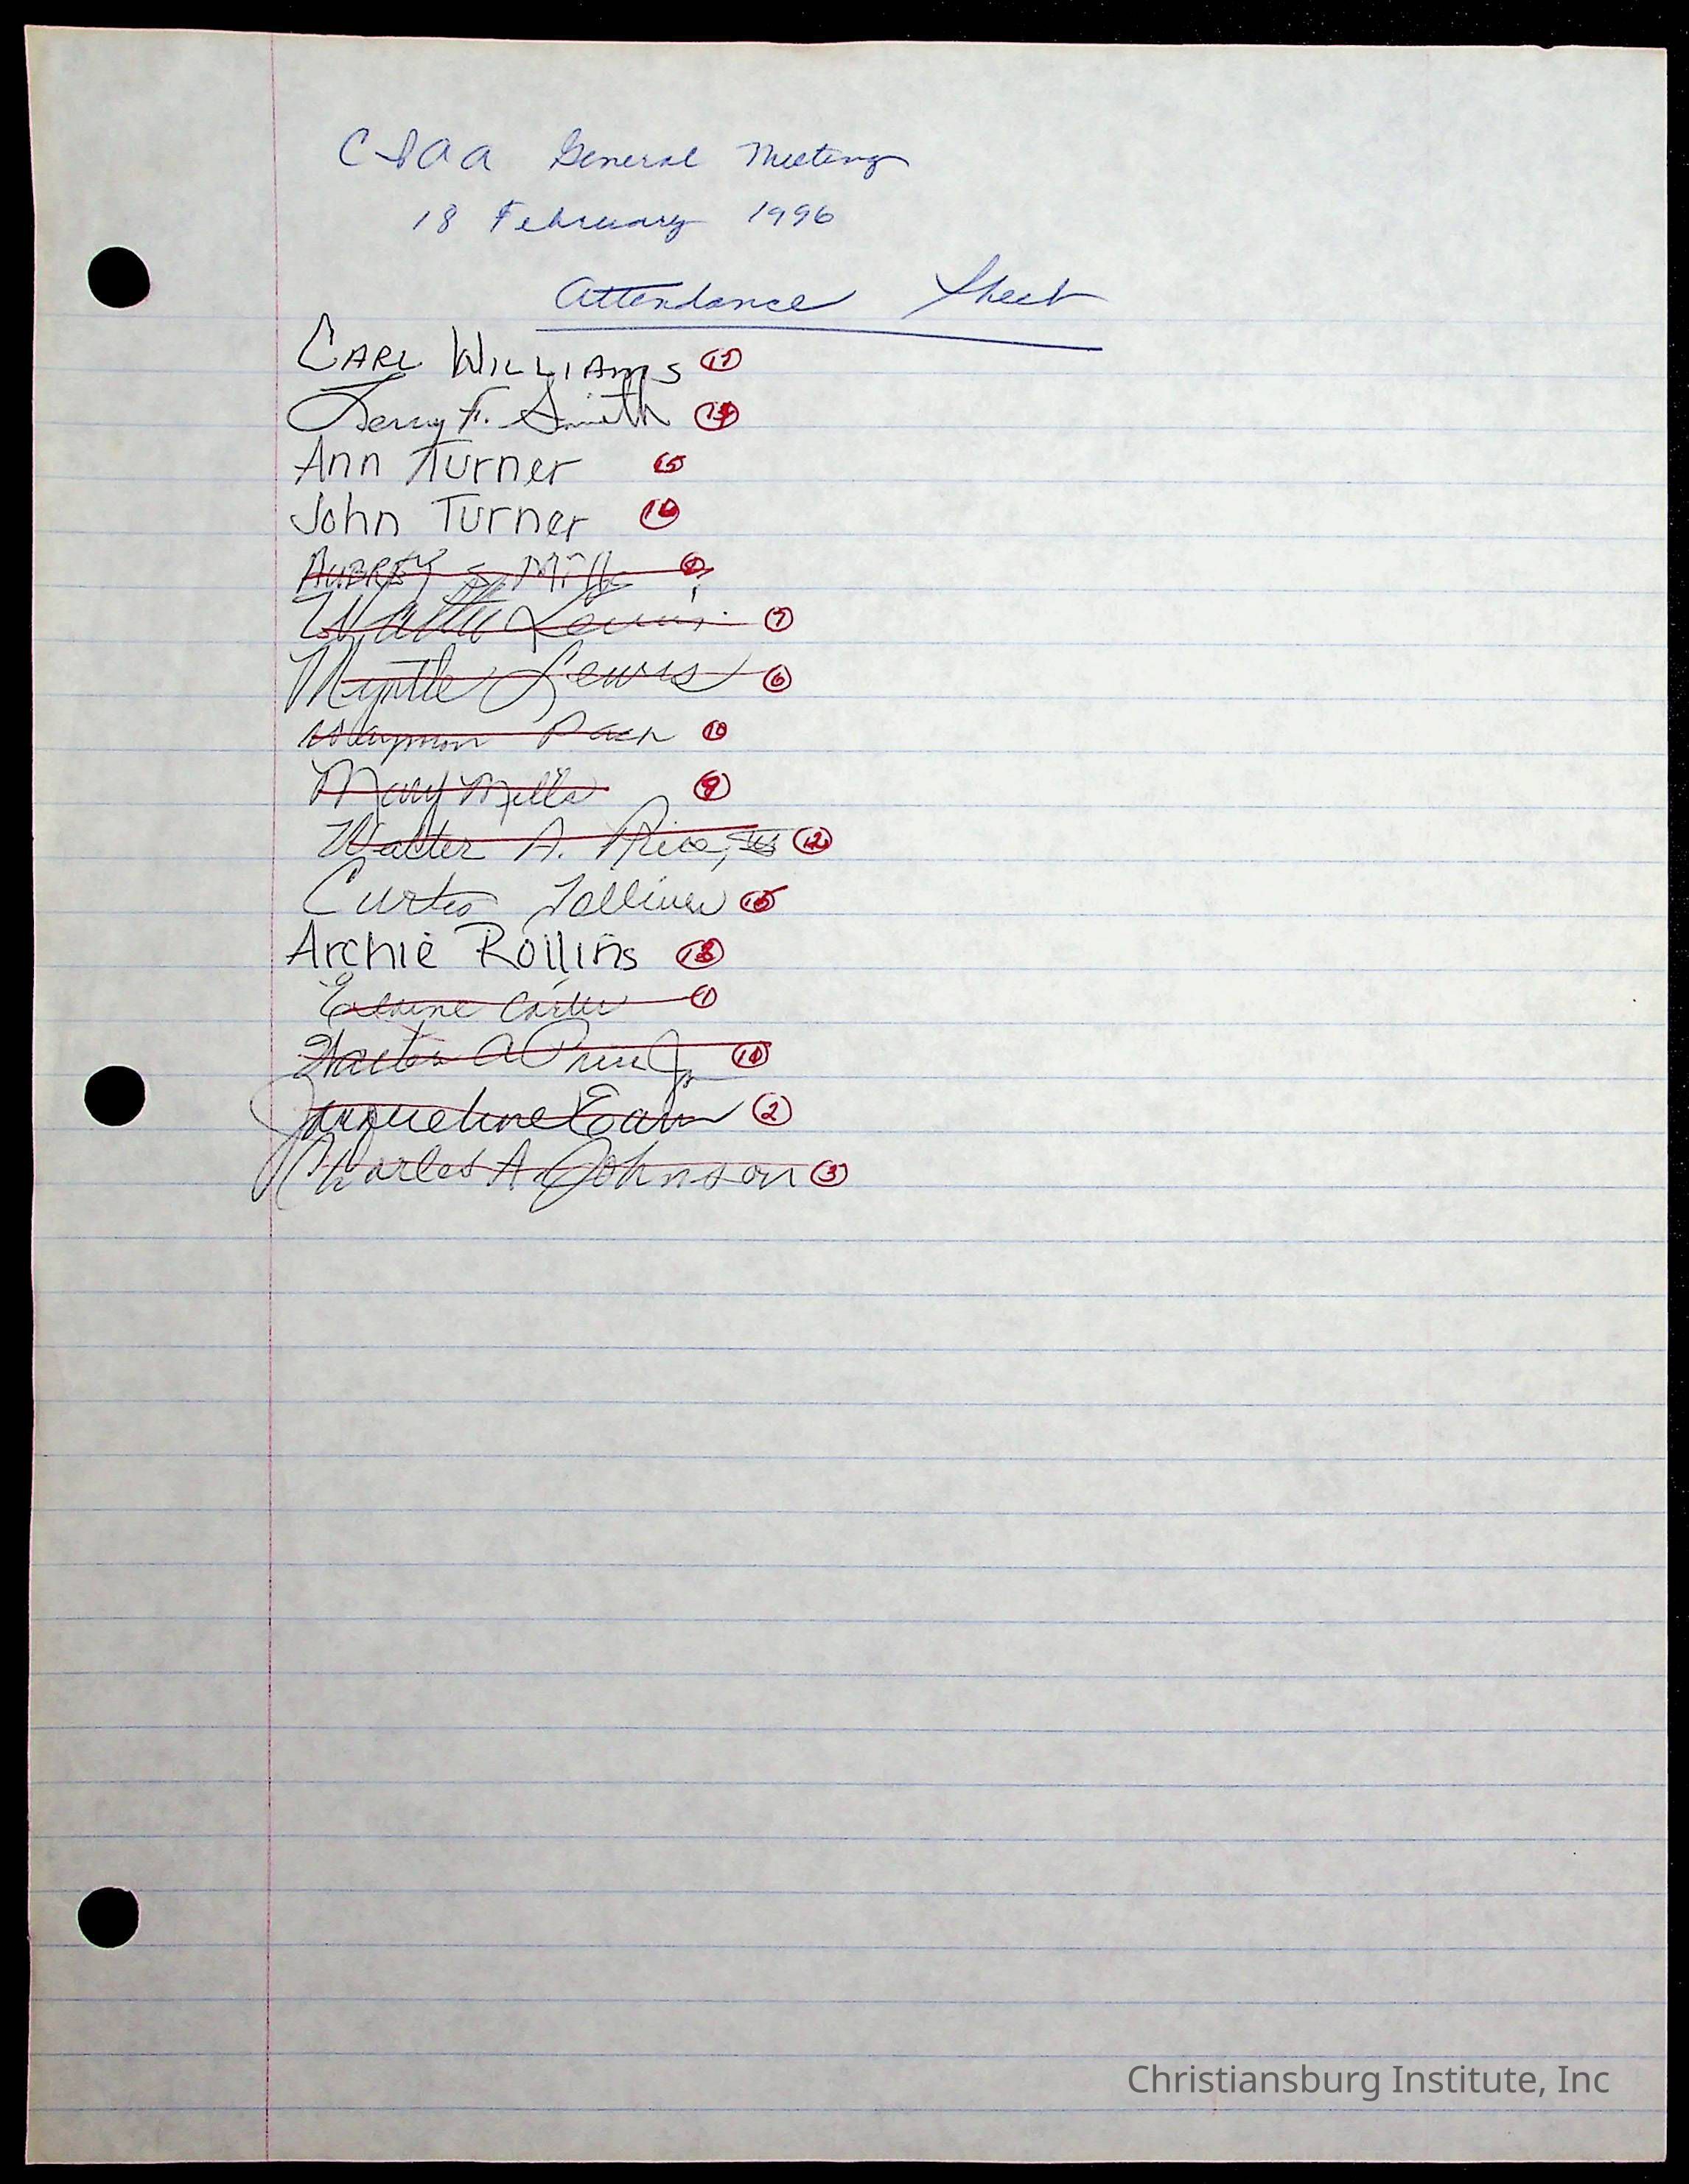 CIAA General Meeting
18 February 1996
Attendance Sheet
CARL WILLIAMS 17
F. Smith 14
Ann Turner 15
John Turner 16
AUBREY Mills
Lewis 7
Myrtle Lewis 6
Waymon Pack 10
Mary Mills 9
Walter A. Rice, III 12
Curtis Tolliver
Archie Rollins 18
Elaine Carter 1
A Jr.
Jacqueline Eaves 2
Charles A. Johnson 3
Christiansburg Institute, Inc